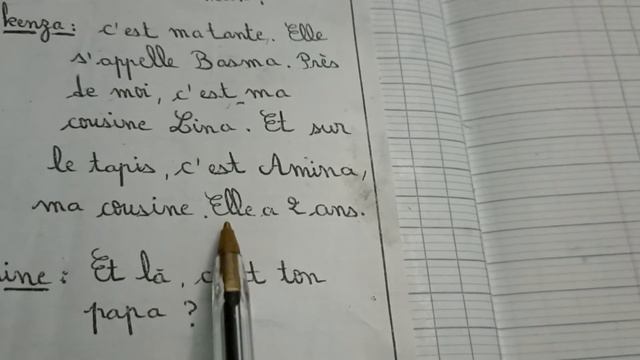 kenza : c'est ma tante. Elle
s'appelle Basma. Près
de moi, c'est ma
cousine Lina. Et sur
le tapis, c'est Amina,
ma cousine. Elle a 2 ans.
ine : Et là, c'est ton
papa ?